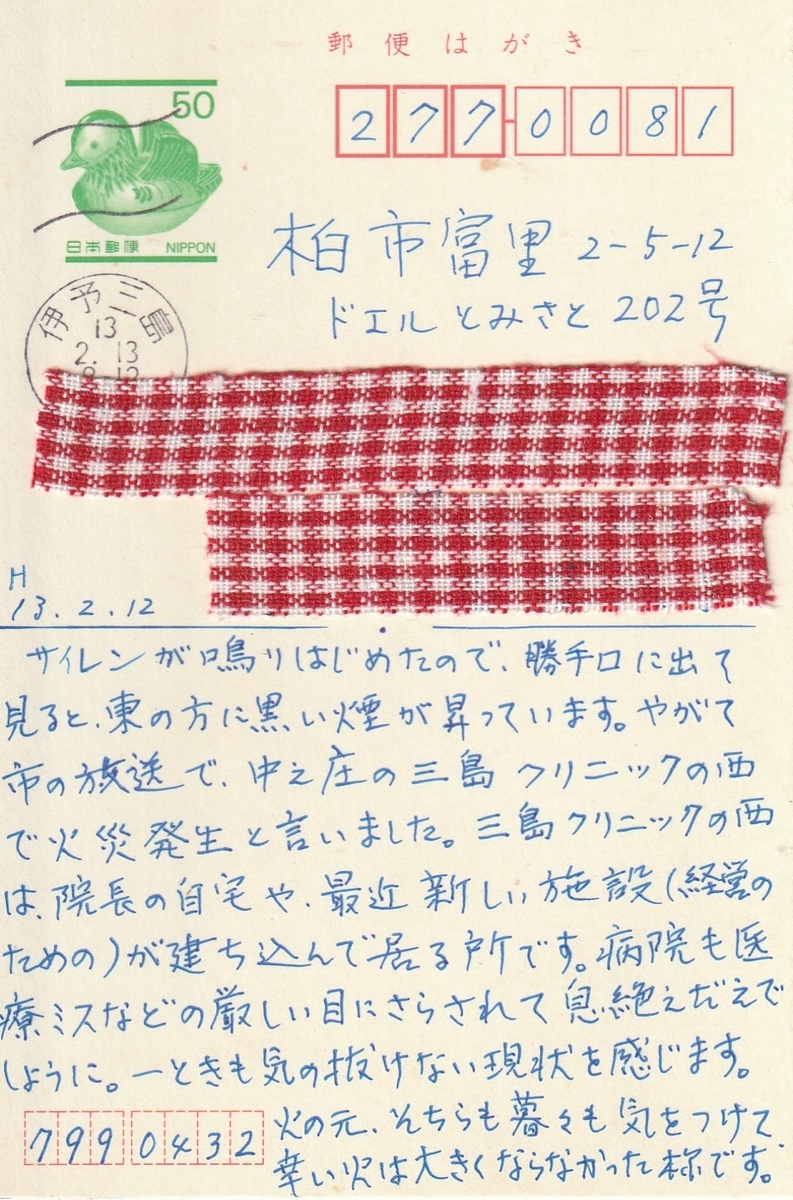 郵便はがき
50
日本郵便 NIPPON
277-0081
柏市富里 2-5-12
ドエルとみさと 202号
伊予三島
13
2. 13
8-12
H
13.2.12
サイレンが鳴りはじめたので、勝手口に出て
見ると、東の方に黒い煙が昇っています。やがて
市の放送で、中之庄の三島クリニックの西
で火災発生と言いました。三島クリニックの西
は、院長の自宅や、最近新しい施設(経営の
ための)が建ち込んで居る戸所です。病院も医
療ミスなどの厳しい目にさらされて息絶えだえで
しょうに。一ときも気の抜けない現状を感じます。
火の元、そちらも暮々も気をつけて
幸い火は大きくならなかった様です。
799 0432